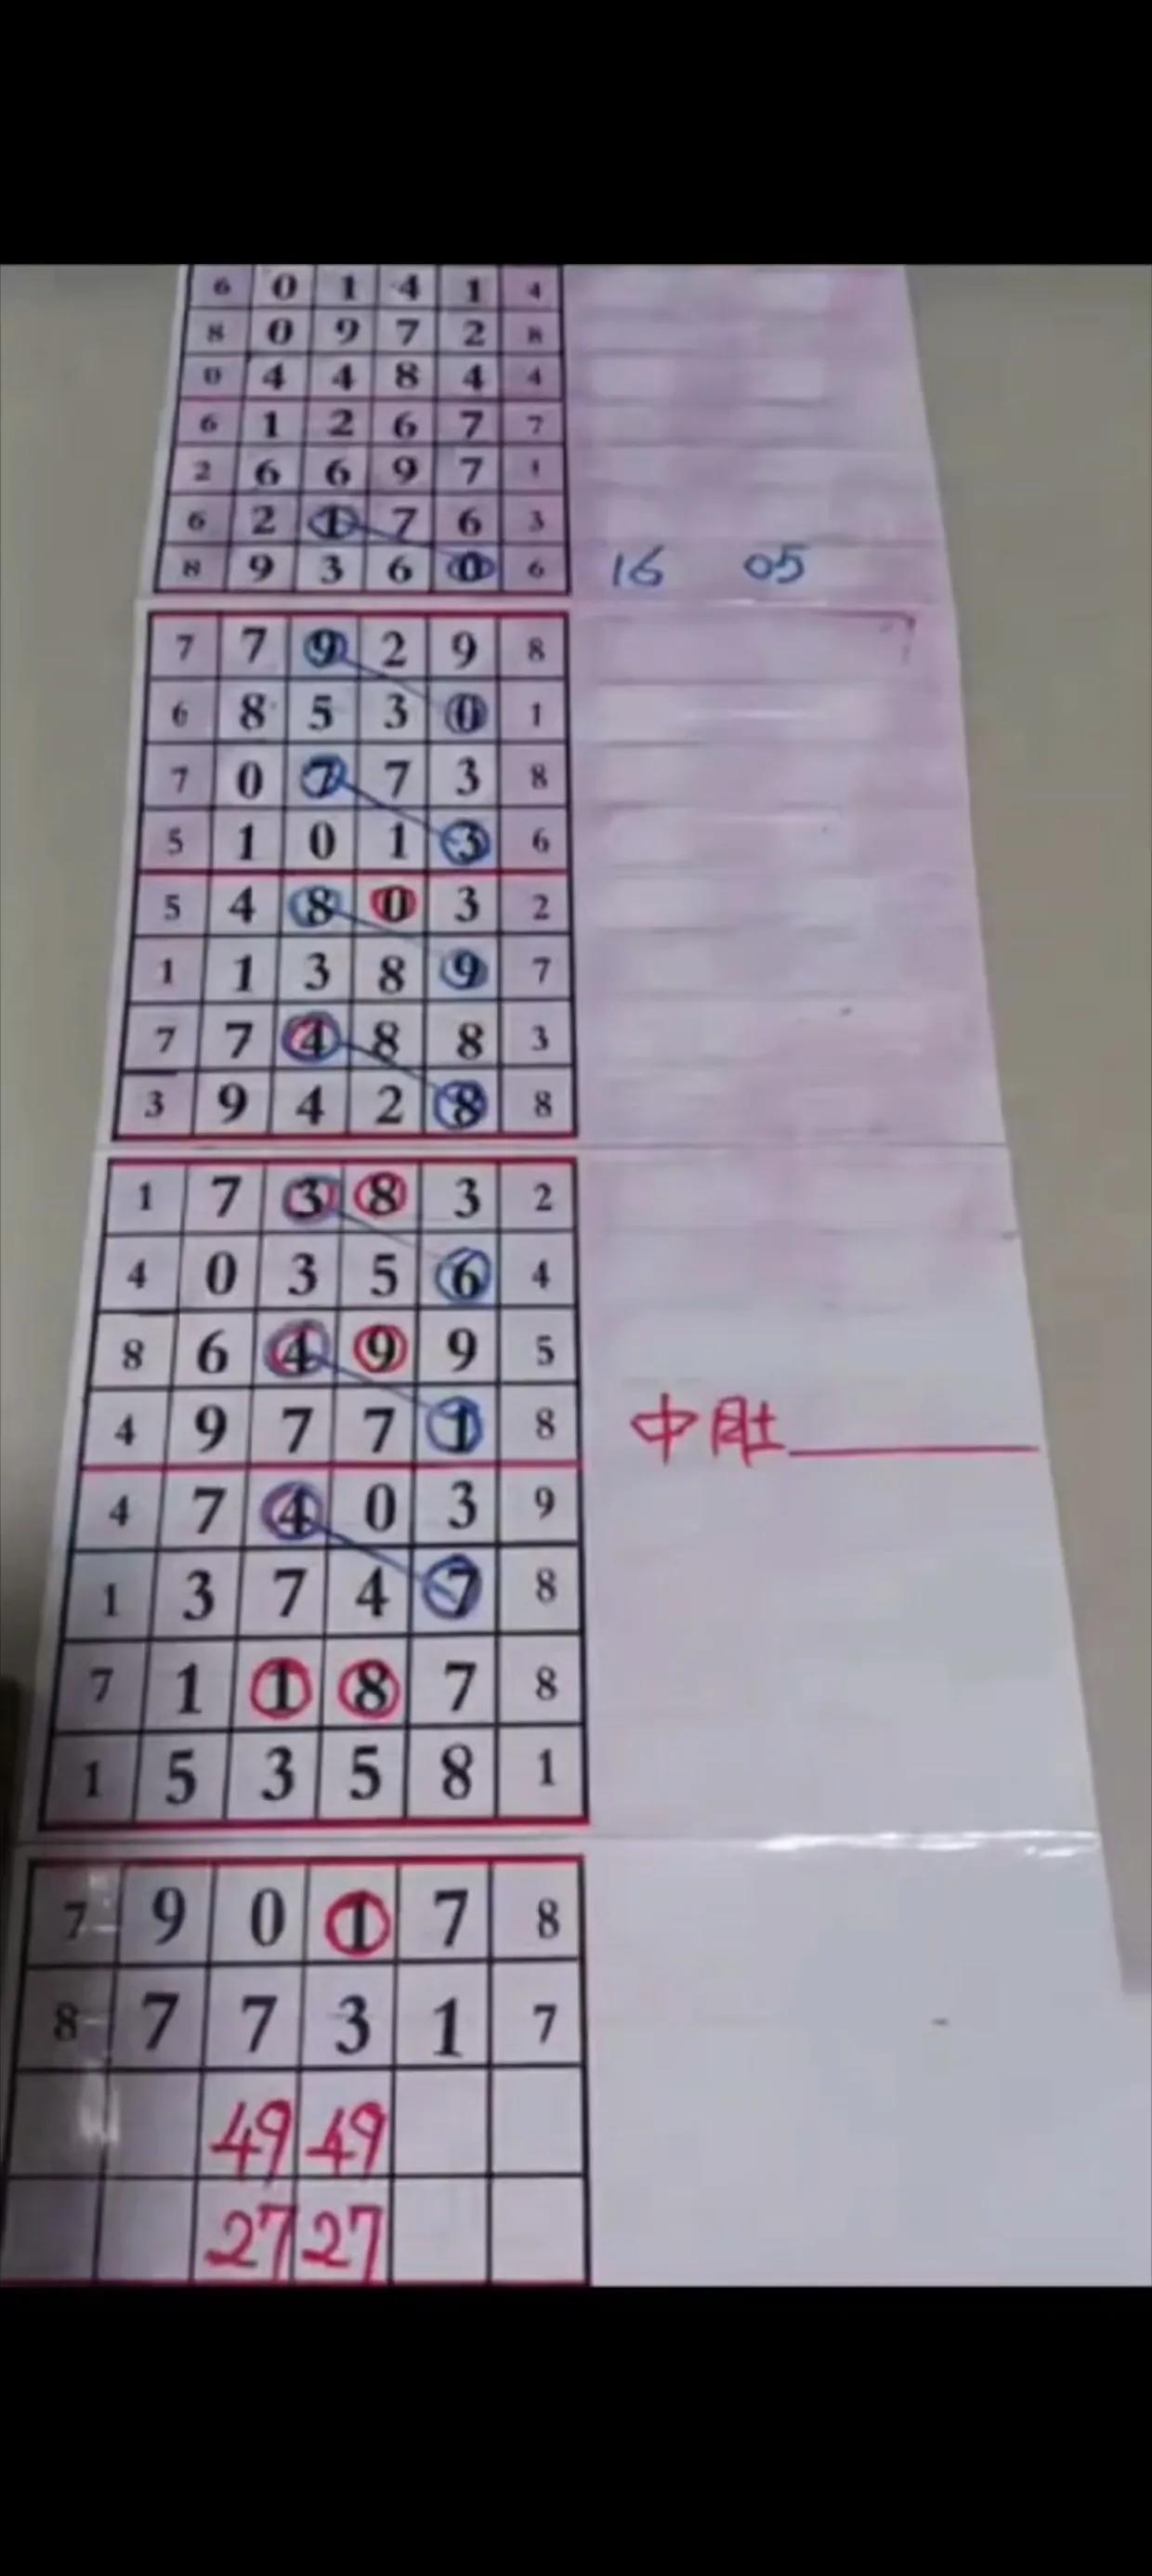 6 0 1 4 1 4
8 0 9 7 2 8
0 4 4 8 4 4
6 1 2 6 7 7
2 6 6 9 7 1
6 2 1 7 6 3
8 9 3 6 0 6 16 05
7 7 9 2 9 8
6 8 5 3 0 1
7 0 7 7 3 8
5 1 0 1 3 6
5 4 8 0 3 2
1 1 3 8 9 7
7 7 4 8 8 3
3 9 4 2 8 8
1 7 3 8 3 2
4 0 3 5 6 4
8 6 4 9 9 5
4 9 7 7 1 8 中肚
4 7 4 0 3 9
1 3 7 4 7 8
7 1 1 8 7 8
1 5 3 5 8 1
7 9 0 1 7 8
8 7 7 3 1 7
49 49
27 27